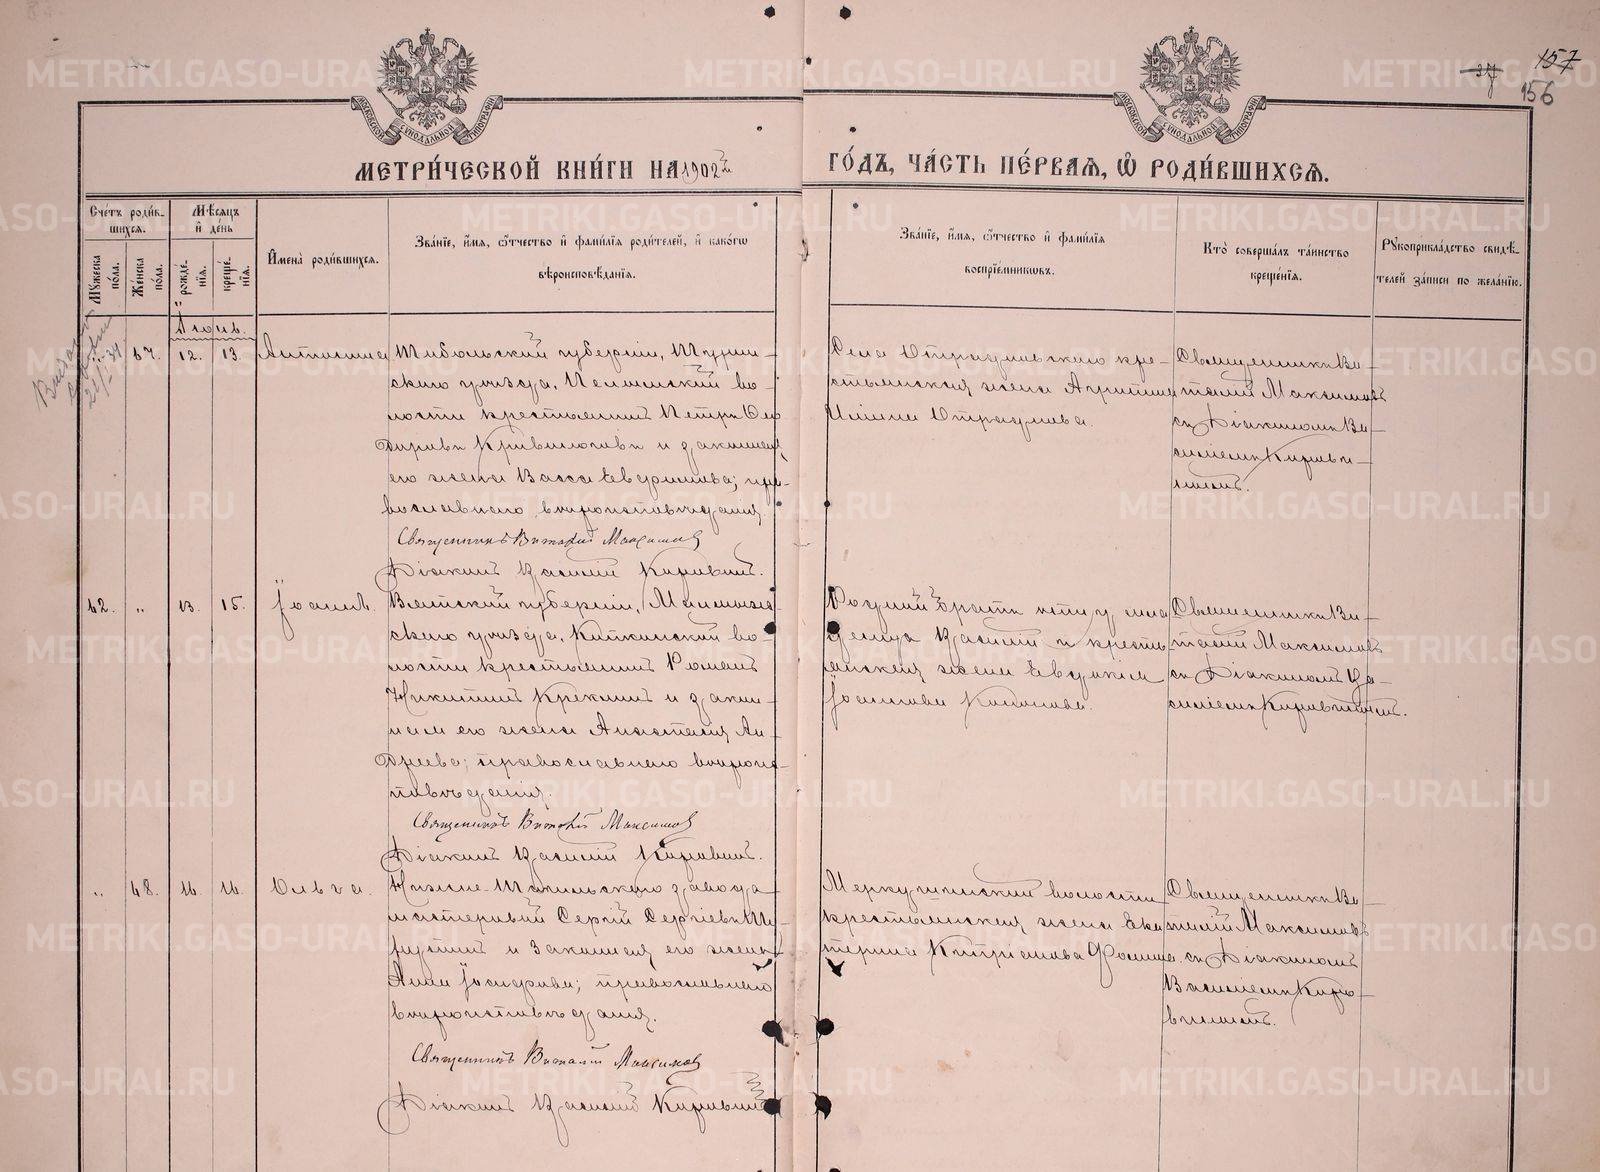 157
37
156
МЕТРИ́ЧЕСКОЙ КНИ́ГИ НА 1902 й
ГО́ДЪ, ЧА́СТЬ ПЕ́РВАѦ, Ѽ РОДИ́ВШИХСѦ.
Сче́тъ роди́в-
шихся.
Мѣ́сяцъ
и́ де́нь
Му́жеска по́ла.
Же́нска по́ла.
рожде́нїя.
креще́нїя.
И҆мена̀ роди́вшихся.
Зва́нїе, и҆́мя, ѻ҆́тчество и҆ фами́лїя роди́телей, и҆ како́гѡ
вѣроисповѣ́данїя.
Зва́нїе, и҆́мя, ѻ҆́тчество и҆ фами́лїя
воспрїе́мниковъ.
Кто̀ соверша́лъ та́инство
креще́нїя.
Рꙋкоприкла́дство свидѣ́-
телей за́писи по жела́нїю.
Іюнь.
47. 12. 13. Антонина
Тобольской губерніи, Турин-
скаго уѣзда, Пелымской во-
лости крестьянинъ Петръ Ѳео-
доровъ Кривоноговъ и законная
его жена Васса Евдокимова; пра-
вославнаго вѣроисповѣданія.
Священникъ Виталій Максимовъ
Діаконъ Василій Коровинъ.
Села Отраднова кре-
стьянская жена Агрипина
Отраднова.
Священникъ Ви-
талій Максимовъ
съ Діакономъ Ва-
силіемъ Корови-
нымъ.
42. „ 13. 15. Іоаннъ.
Вятской губерніи, Малмыж-
скаго уѣзда, волости крестьянинъ Романъ
Никитинъ и закон-
ная его жена Анастасія Ан-
дреева; православнаго вѣроис-
повѣданія.
Священникъ Виталій Максимовъ
Діаконъ Василій Коровинъ.
Родной братъ отцу мла-
денца Василій и кресть-
янская жена Евдокія
Іоаннова
Священникъ Ви-
талій Максимовъ
съ Діакономъ Ва-
силіемъ Коровинымъ.
„ 48. 16. 16. Ольга.
Нижне-Тагильскаго завода
мастеровой Сергій Сергіевъ
и законная его жена
Анна Іосифова; православнаго
вѣроисповѣданія.
Священникъ Виталій Максимовъ
Діаконъ Василій Коровинъ
Меркушинской волости
крестьянская жена Ека-
терина Кипріанова Ѳомина.
Священникъ Ви-
талій Максимовъ
съ Діакономъ
Василіемъ Коро-
винымъ.
METRIKI.GASO-URAL.RU